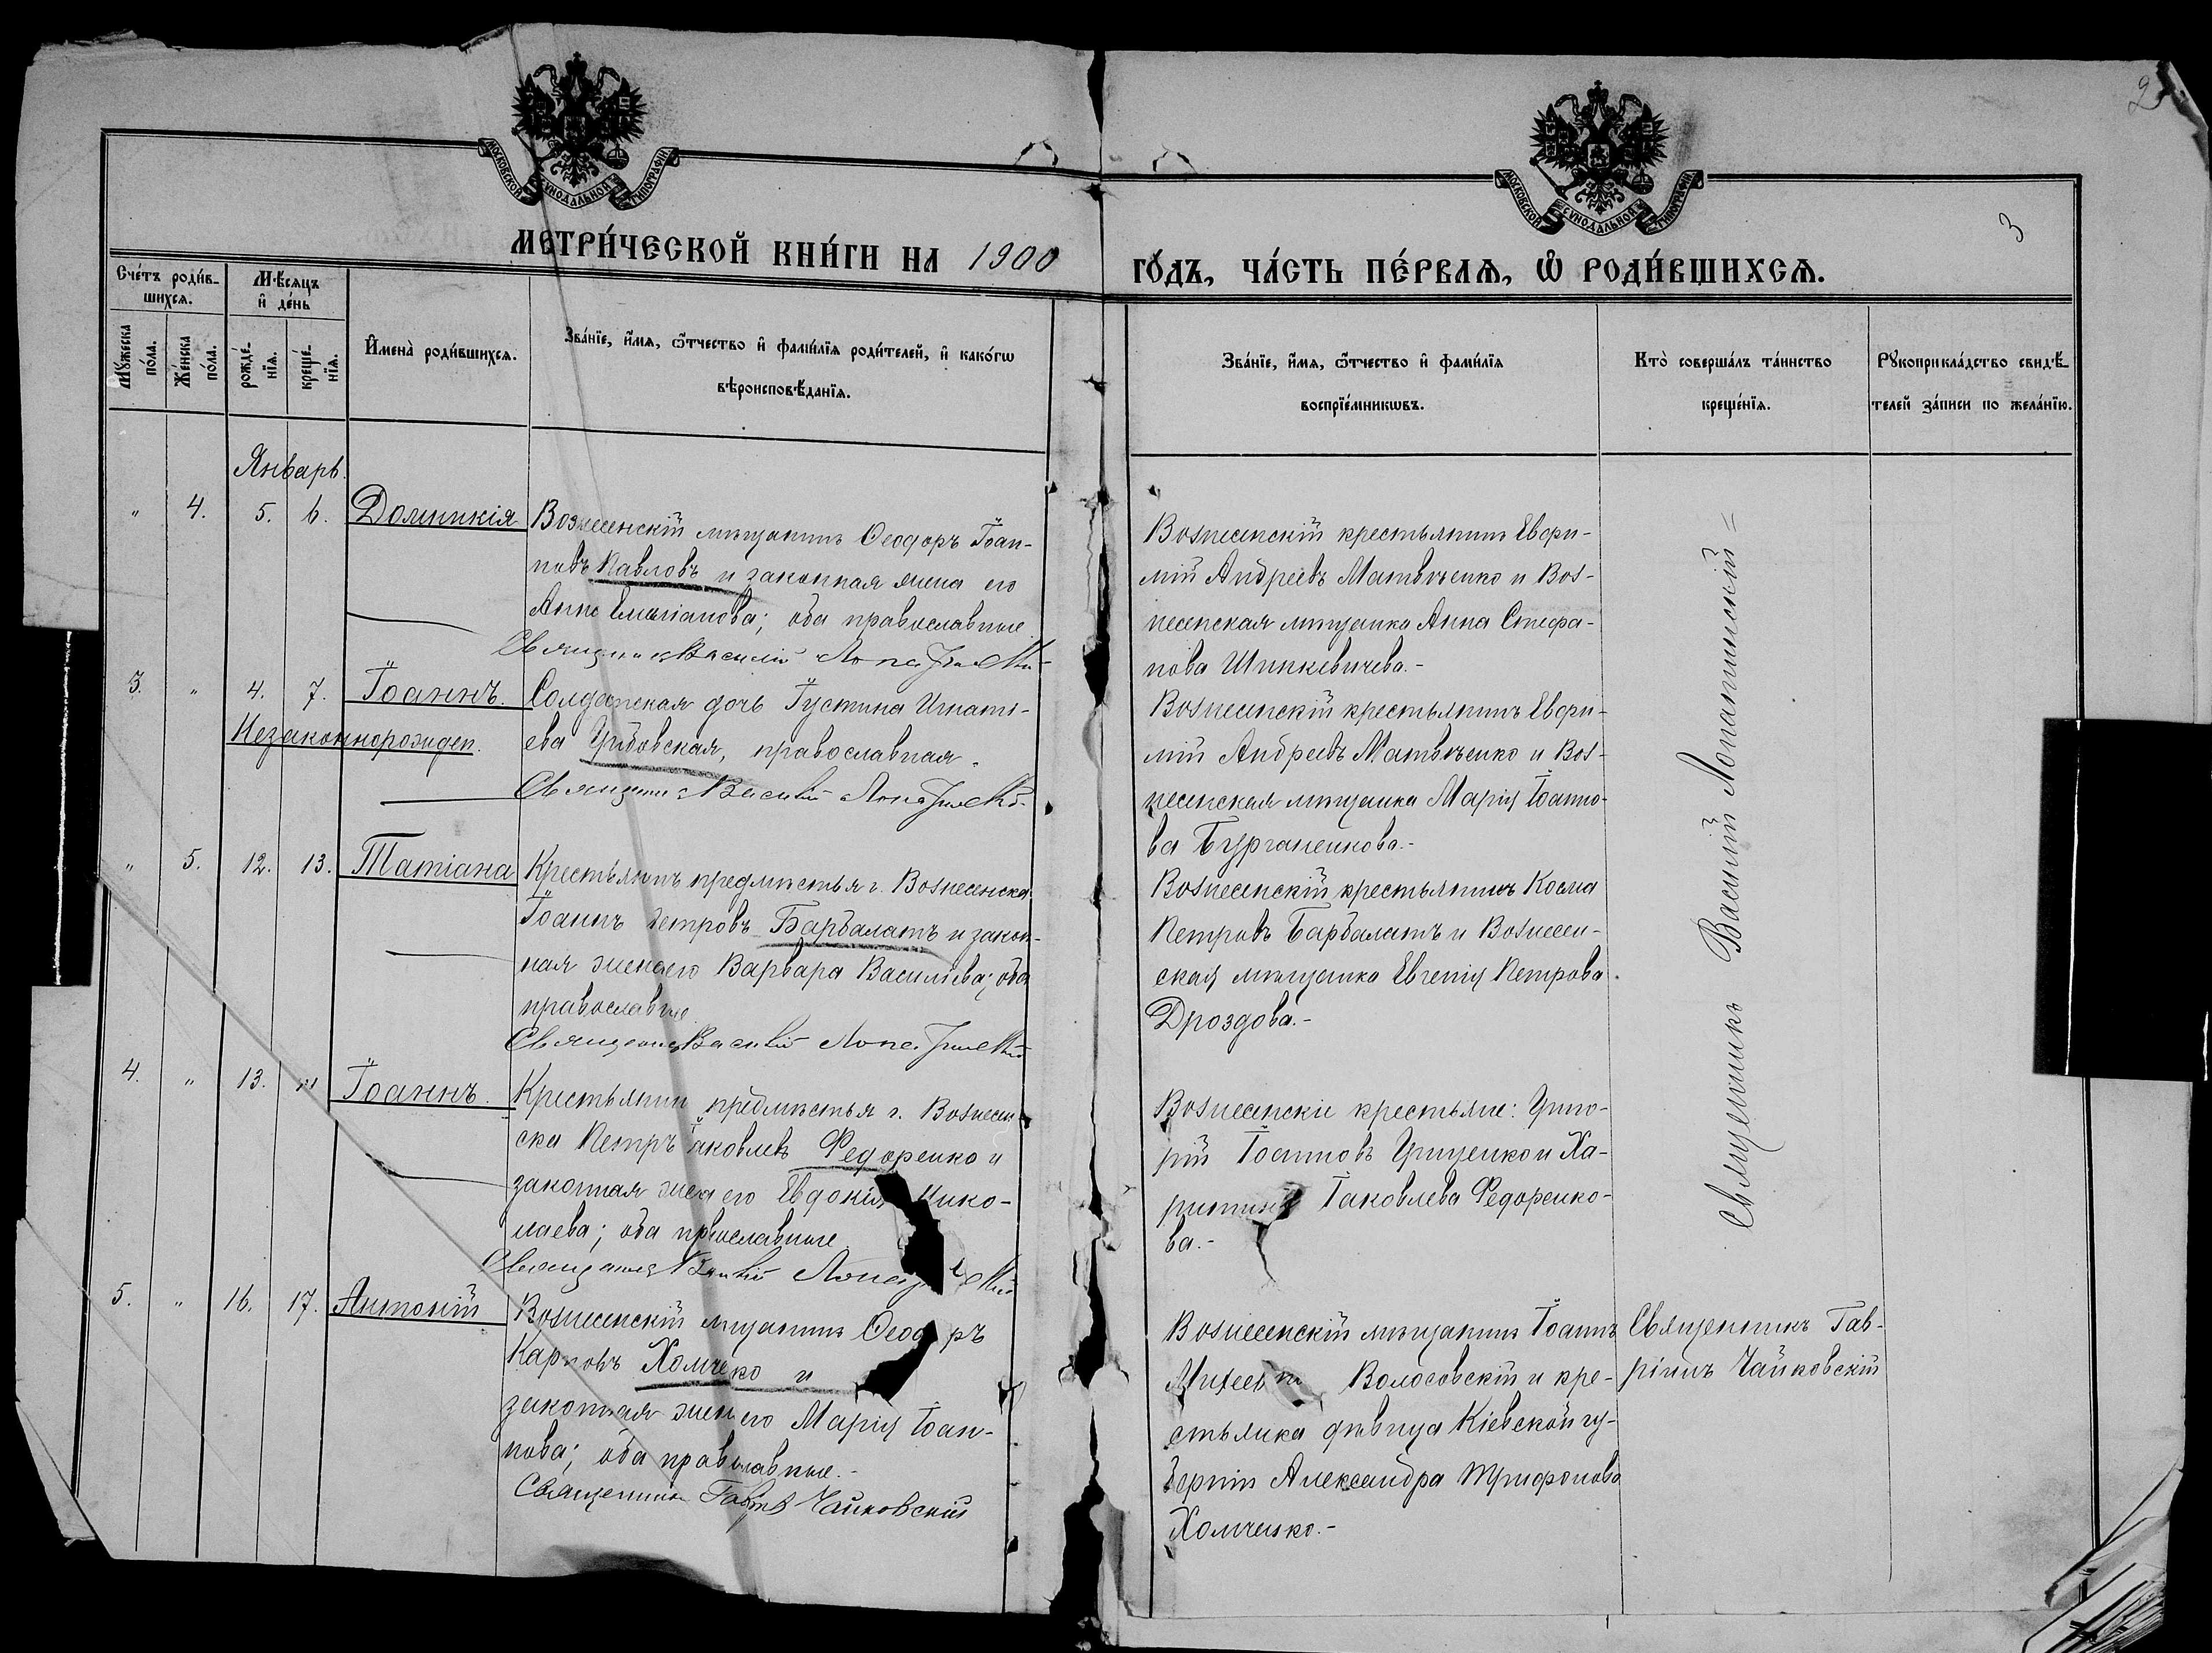 2
3
МОСКОВСКОЙ СѴНОДАЛЬНОЙ ТИПОГРАФІИ
МОСКОВСКОЙ СѴНОДАЛЬНОЙ ТИПОГРАФІИ
МЕТРИ́ЧЕСКОЙ КНИ́ГИ НА 1900
ГО́ДЪ, ЧА́СТЬ ПЕ́РВАѦ, Ѽ РОДИ́ВШИХСѦ.
Сче́тъ роди́в-
шихсѧ.
Мꙋ́жеска
по́ла.
Же́нска
по́ла.
Мѣ́сѧцъ
и҆ де́нь
рожде́-
нїѧ.
креще́-
нїѧ.
И҆мена̀ роди́вшихсѧ.
Зва́нїе, и҆́мѧ, ѻ҆́тчество и҆ фами́лїѧ роди́телей, и҆ како́гѡ
вѣроисповѣ́данїѧ.
Зва́нїе, и҆́мѧ, ѻ҆́тчество и҆ фами́лїѧ
воспрїе́мникѡвъ.
Кто̀ соверша́лъ та́инство
креще́нїѧ.
Рꙋкоприкла́дство свидѣ́-
телей за́писи по жела́нїю.
Январь.
" 4. 5. 6. Домникія
Вознесенскій мѣщанинъ Ѳеодоръ Іоан-
новъ Павловъ и законная жена его
Анна Емиліанова; оба православные
Священникъ Василій Лопатинскій
Вознесенскій крестьянинъ Евфи-
мій Андреевъ Матвѣенко и Воз-
несенская мѣщанка Анна Стефа-
нова Шинкевичева.-
3. " 4. 7. Іоаннъ.
Незаконнорожден.
Солдатская дочь Іустина Игнаті-
ева , православная.
Священникъ Василій Лопатинскій
Вознесенскій крестьянинъ Евфи-
мій Андреевъ Матвѣенко и Воз-
несенская мѣщанка Марія Іоанно-
ва .-
" 5. 12. 13. Татіана
Крестьянинъ предмѣстья г. Вознесенска
Іоаннъ Петровъ Барбалатъ и закон-
ная жена его Варвара Василіева; оба
православные
Священникъ Василій Лопатинскій
Вознесенскій крестьянинъ Косма
Петровъ Барбалатъ и Вознесен-
ская мѣщанка Евгенія Петрова
Дроздова.-
4. " 13. "" Іоаннъ.
Крестьянин предмѣстья г. Вознесен-
ска Петръ Іаковлевъ Федоренко и
законная жена его Евдокія Нико-
лаева; оба православные
Священникъ Василій Лопатинскій
Вознесенскіе крестьяне: Григо-
рій Іоанновъ Грищенко и Ха-
ритина Іаковлева Федоренко-
ва.-
Священникъ Василій Лопатинскій =
5. " 16. 17. Антоній
Вознесенскій мѣщанинъ Ѳеодоръ
Карповъ Хомченко и
законная жена его Марія Іоан-
нова; оба православные.-
Священникъ Чайковскій
Вознесенскій мѣщанинъ Іоаннъ
Михеевъ Волосовскій и кре-
стьянка дѣвица Кіевской гу-
берніи Александра Трифонова
Хомченко.-
Священникъ Гав-
ріилъ Чайковскій